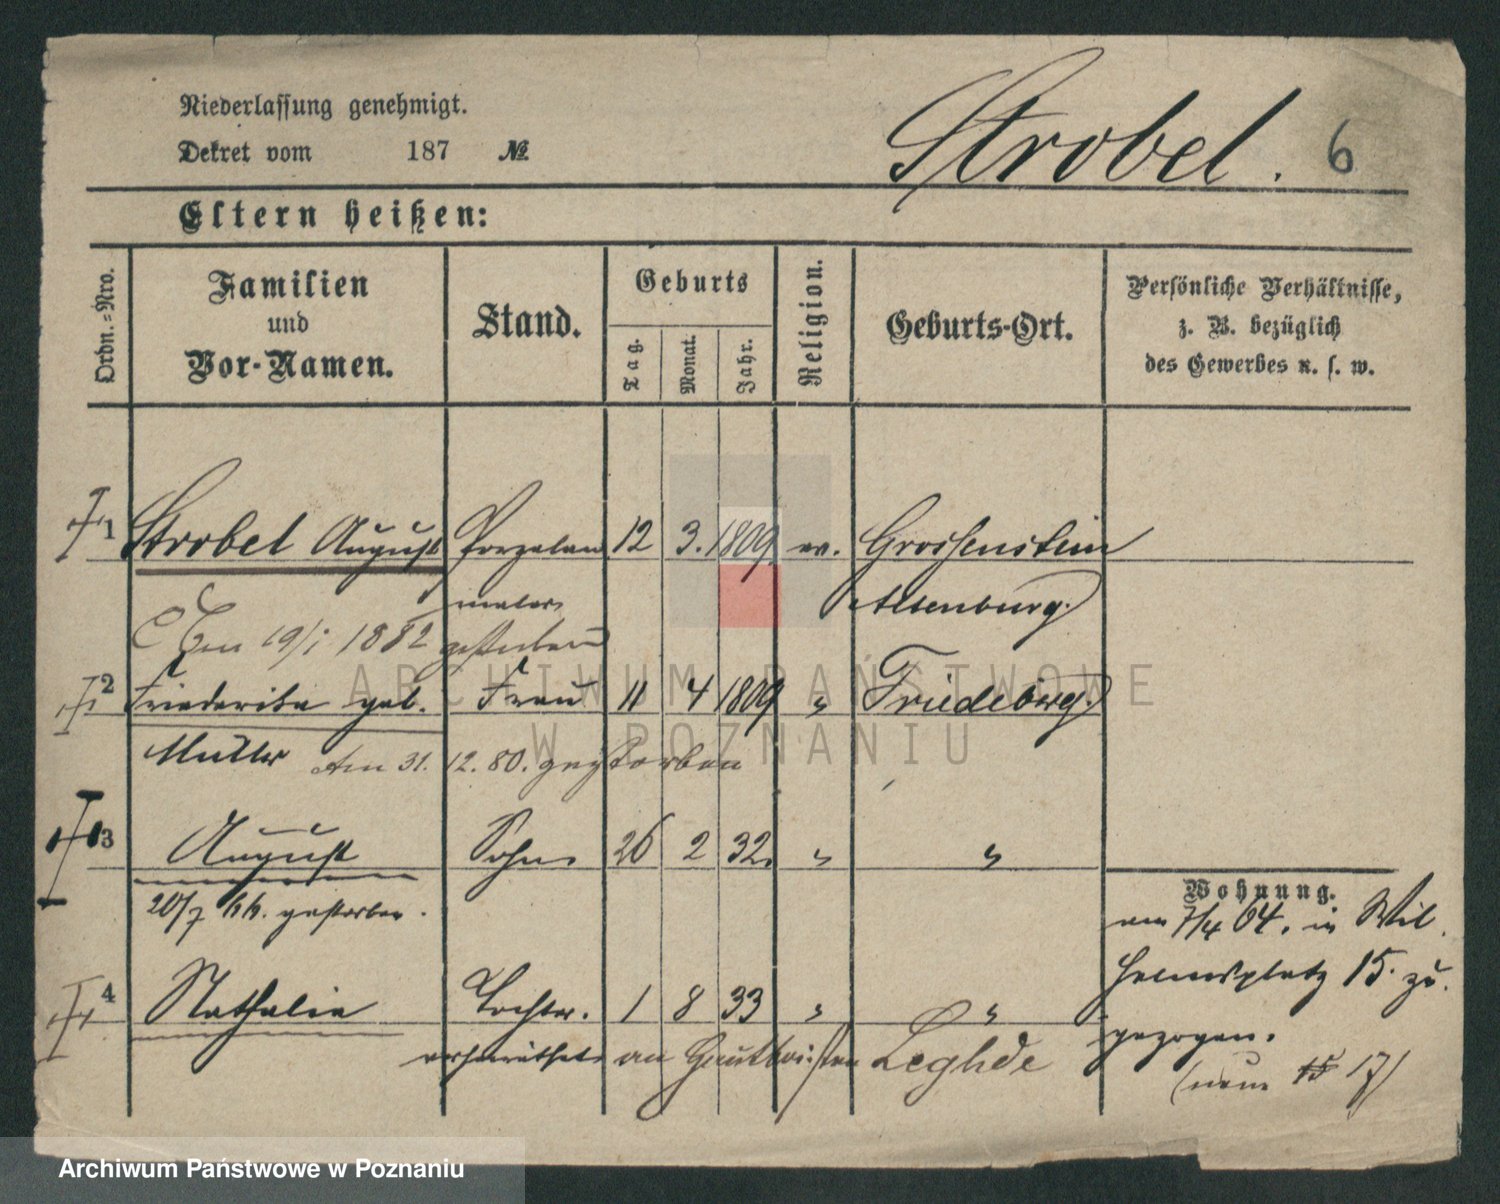 Niederlassung genehmigt.
Dekret vom 187 №
Strobel. 6
Eltern heißen:
Ordn.-Nro.
Familien
und
Vor-Namen.
Stand.
Geburts
Tag.
Monat.
Jahr.
Religion.
Geburts-Ort.
Persönliche Verhältnisse,
z. B. bezüglich
des Gewerbes u. s. w.
1 Strobel August Porzelan 12 3. 1809 ev. Grossenstein
maler Altenburg.
Am 19/1 1882 gestorben
2 Friederike geb. Frau 11 4 1809 " Friedeberg
Müller Am 31. 12. 80. gestorben
3 August Sohn 26 2 32. " "
20/7 66. gestorben.
Wohnung.
am 7/4 64. in Wil
helmsplatz 15. zu.
gezogen.
(neue 15 17)
4 Nathalie Tochter. 1 8 33 " "
verheirathet an Leghde
ARCHIWUM PAŃSTWOWE
W POZNANIU
Archiwum Państwowe w Poznaniu